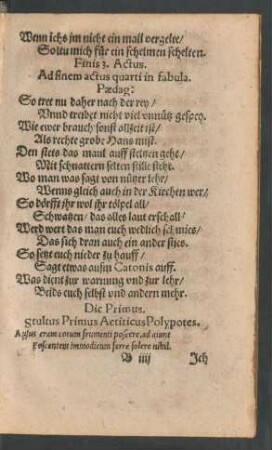 Wenn ichs jm nicht ein mall vergelte/
Soltu mich für ein schelmen schelten.
Finis 3. Actus.
Ad finem actus quarti in fabula.
Pædag:
So tret nu daher nach der rey/
Vnnd treibet nicht viel vnnütz geschrey.
Wie ewer brauch sonst allzeit ist/
Als rechte grobe Hans mist.
Den stets das maul auff steinen geht/
Mit schnattern selten stille steht.
Wo man was sagt von nützer lehr/
Wenns gleich auch in der Kirchen wer/
So dörfft ihr wol ihr tölpel all/
Schwatzen/ das alles laut erschall/
Werd wert das man euch wedlich schmies/
Das sich dran auch ein ander sties.
So setzt euch nieder zu hauff/
Sagt etwas außm Catonis auff.
Was dient zur warnung vnd zur lehr/
Beids euch selbst und andern mehr.
Dic Primus.
Stultus Primus Aetiticus Polypotes.
eram eorum frumenti poscere, ad
poscentem immodicum ferre solere nihil.
B iiij Ich